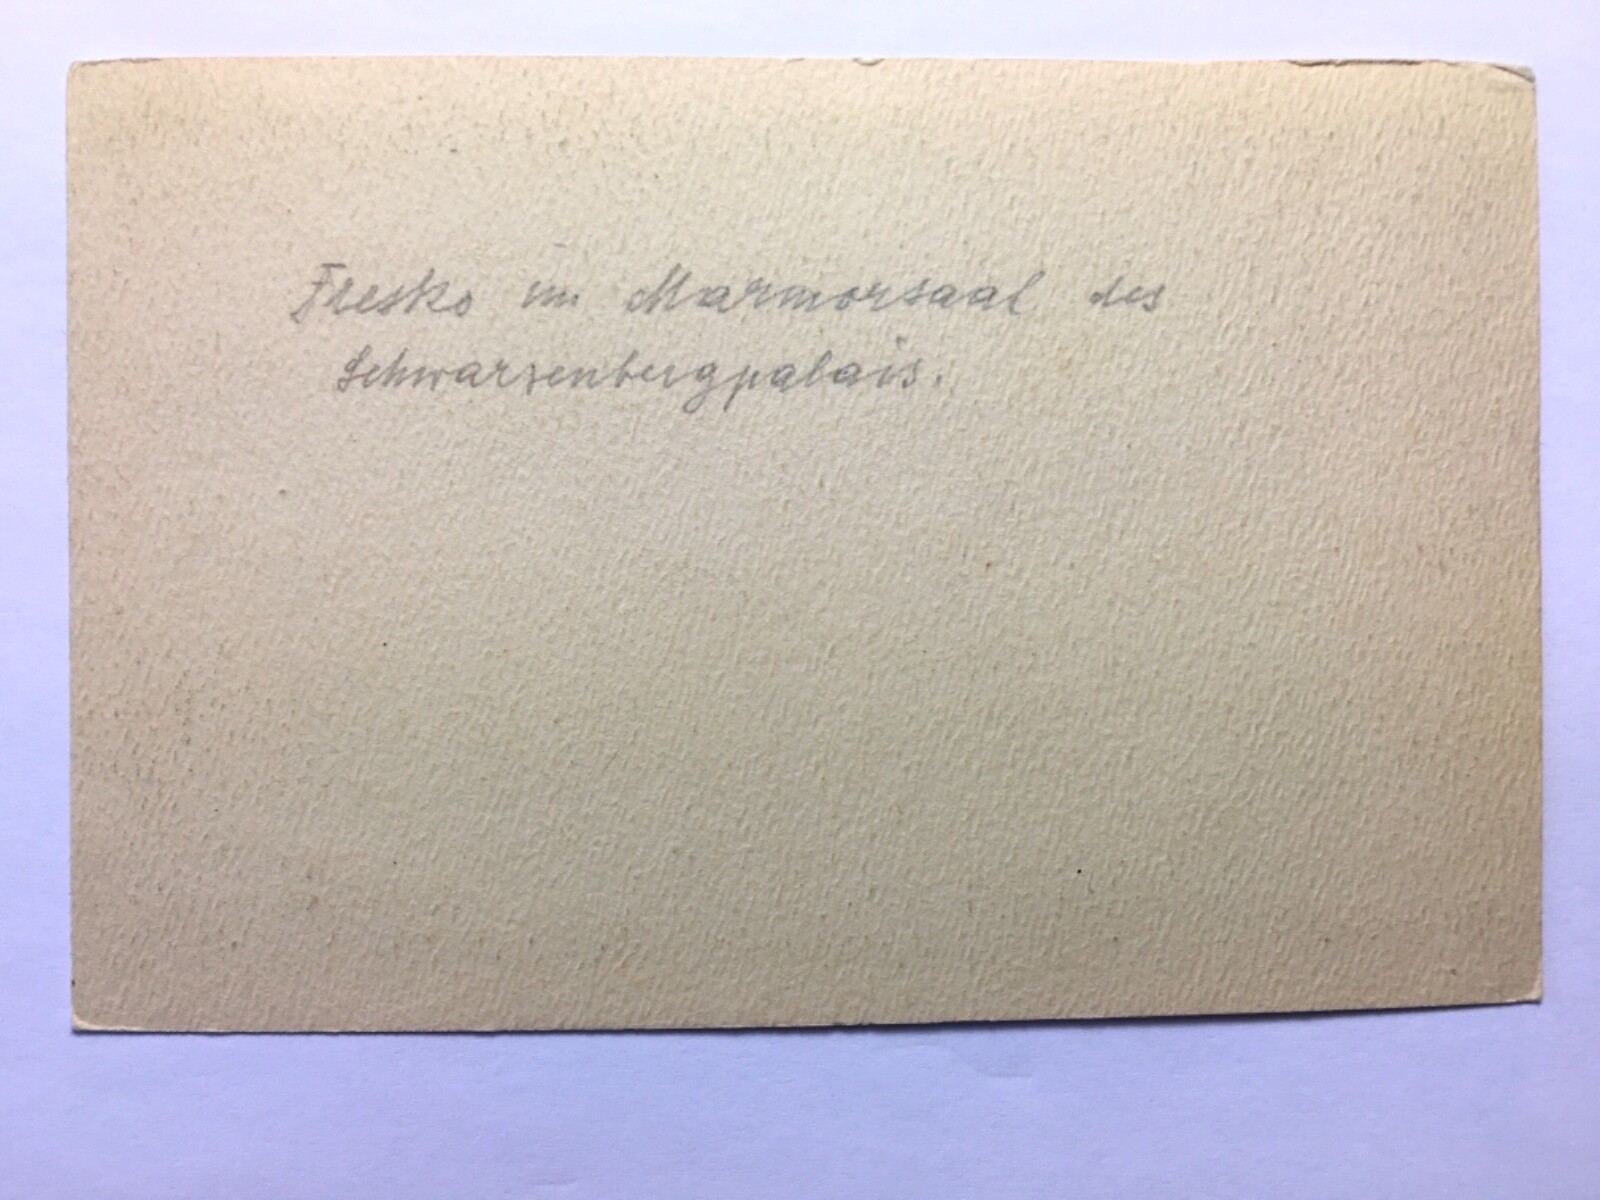 Fresko im Marmorsaal des
Schwarzenbergpalais.